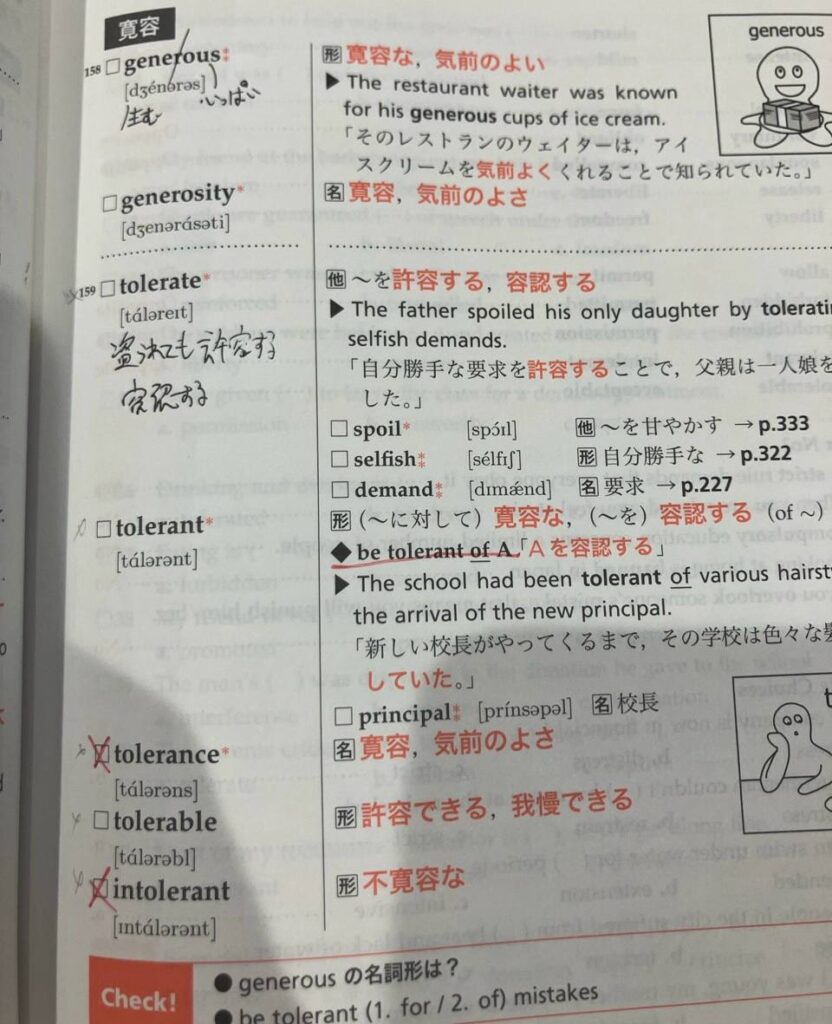 寛容
158 □ generous‡
[dʒénərəs]
生む いっぱい
形 寛容な，気前のよい
▶ The restaurant waiter was known
for his generous cups of ice cream.
「そのレストランのウェイターは，アイ
スクリームを気前よくくれることで知られていた。」
generous
□ generosity*
[dʒenərásəti]
名 寛容，気前のよさ
159 □ tolerate*
[táləreɪt]
許容する
容認する
他 〜を許容する，容認する
▶ The father spoiled his only daughter by toleratin
selfish demands.
「自分勝手な要求を許容することで，父親は一人娘を
した。」
□ spoil* [spɔ́ɪl] 他 〜を甘やかす → p.333
□ selfish‡ [sélfɪʃ] 形 自分勝手な → p.322
□ demand‡ [dɪmǽnd] 名 要求 → p.227
□ tolerant*
[tálərənt]
形 (〜に対して) 寛容な，(〜を) 容認する (of 〜)
◆ be tolerant of A「Aを容認する」
▶ The school had been tolerant of various hairst
the arrival of the new principal.
「新しい校長がやってくるまで，その学校は色々な髪
していた。」
□ principal‡ [prínsəpəl] 名 校長
□ tolerance*
[tálərəns]
名 寛容，気前のよさ
□ tolerable
[tálərəbl]
形 許容できる，我慢できる
□ intolerant
[ɪntálərənt]
形 不寛容な
Check!
● generous の名詞形は？
● be tolerant (1. for / 2. of) mistakes